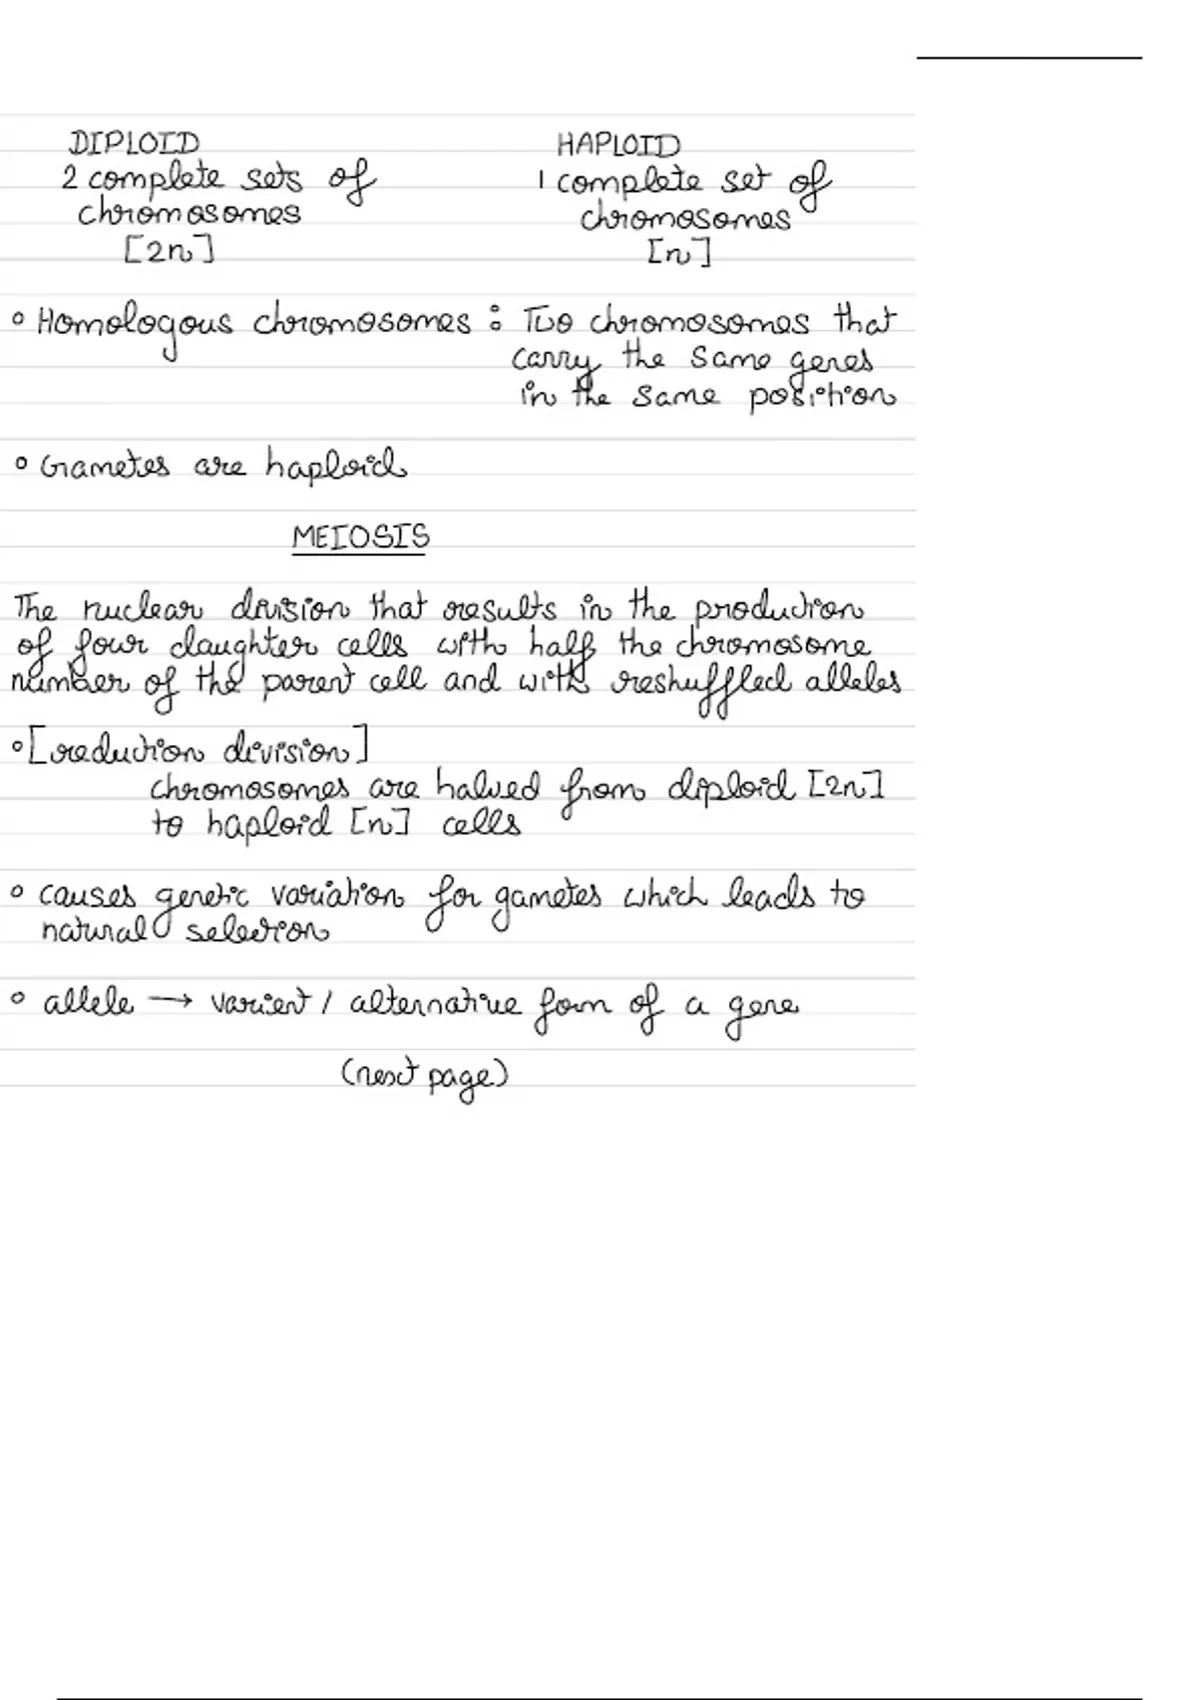 DIPLOID HAPLOID
2 complete sets of 1 complete set of
chromosomes chromosomes
[2n] [n]
• Homologous chromosomes : Two chromosomes that
carry the same genes
in the same position
• Gametes are haploid
MEIOSIS
The nuclear division that results in the production
of four daughter cells with half the chromosome
number of the parent cell and with reshuffled alleles
• [reduction division]
chromosomes are halved from diploid [2n]
to haploid [n] cells
• causes genetic variation for gametes which leads to
natural selection
• allele → varient / alternative form of a gene
(next page)